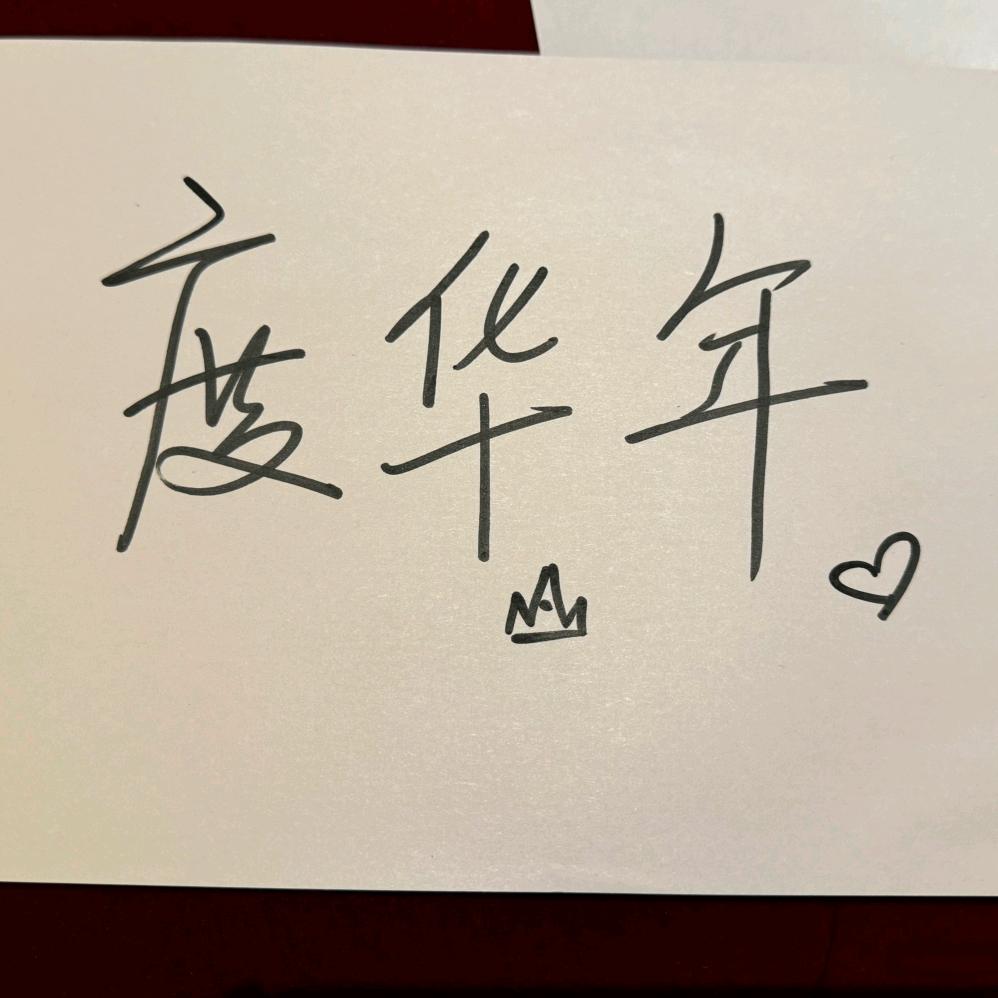 度华年